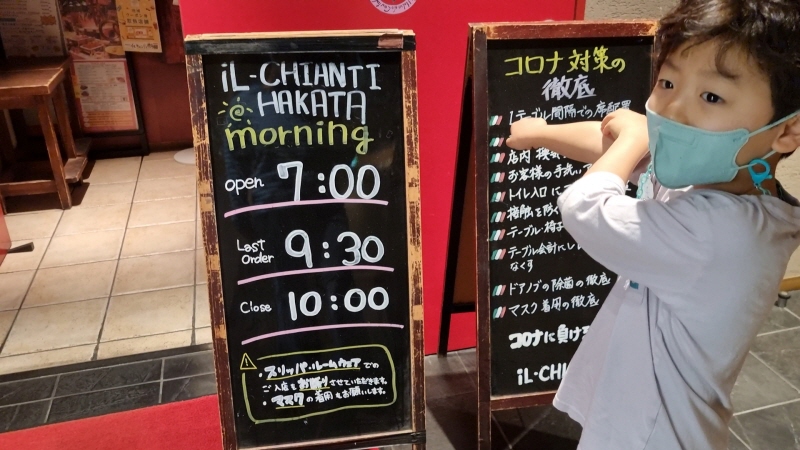 iL-CHIANTI
HAKATA
morning
open 7:00
Last Order 9:30
Close 10:00
・スリッパ・ルームウェアでの
ご入店をお断りさせていただきます。
・マスクの着用もお願いします。
コロナ対策の
徹底
1テーブル間隔での席配置
店内 換気
お客様の手洗い
トイレ入口に
接触を防ぐ
テーブル・椅子
テーブル会計にし
なくす
ドアノブの除菌の徹底
マスク着用の徹底
コロナに負ける
iL-CHI